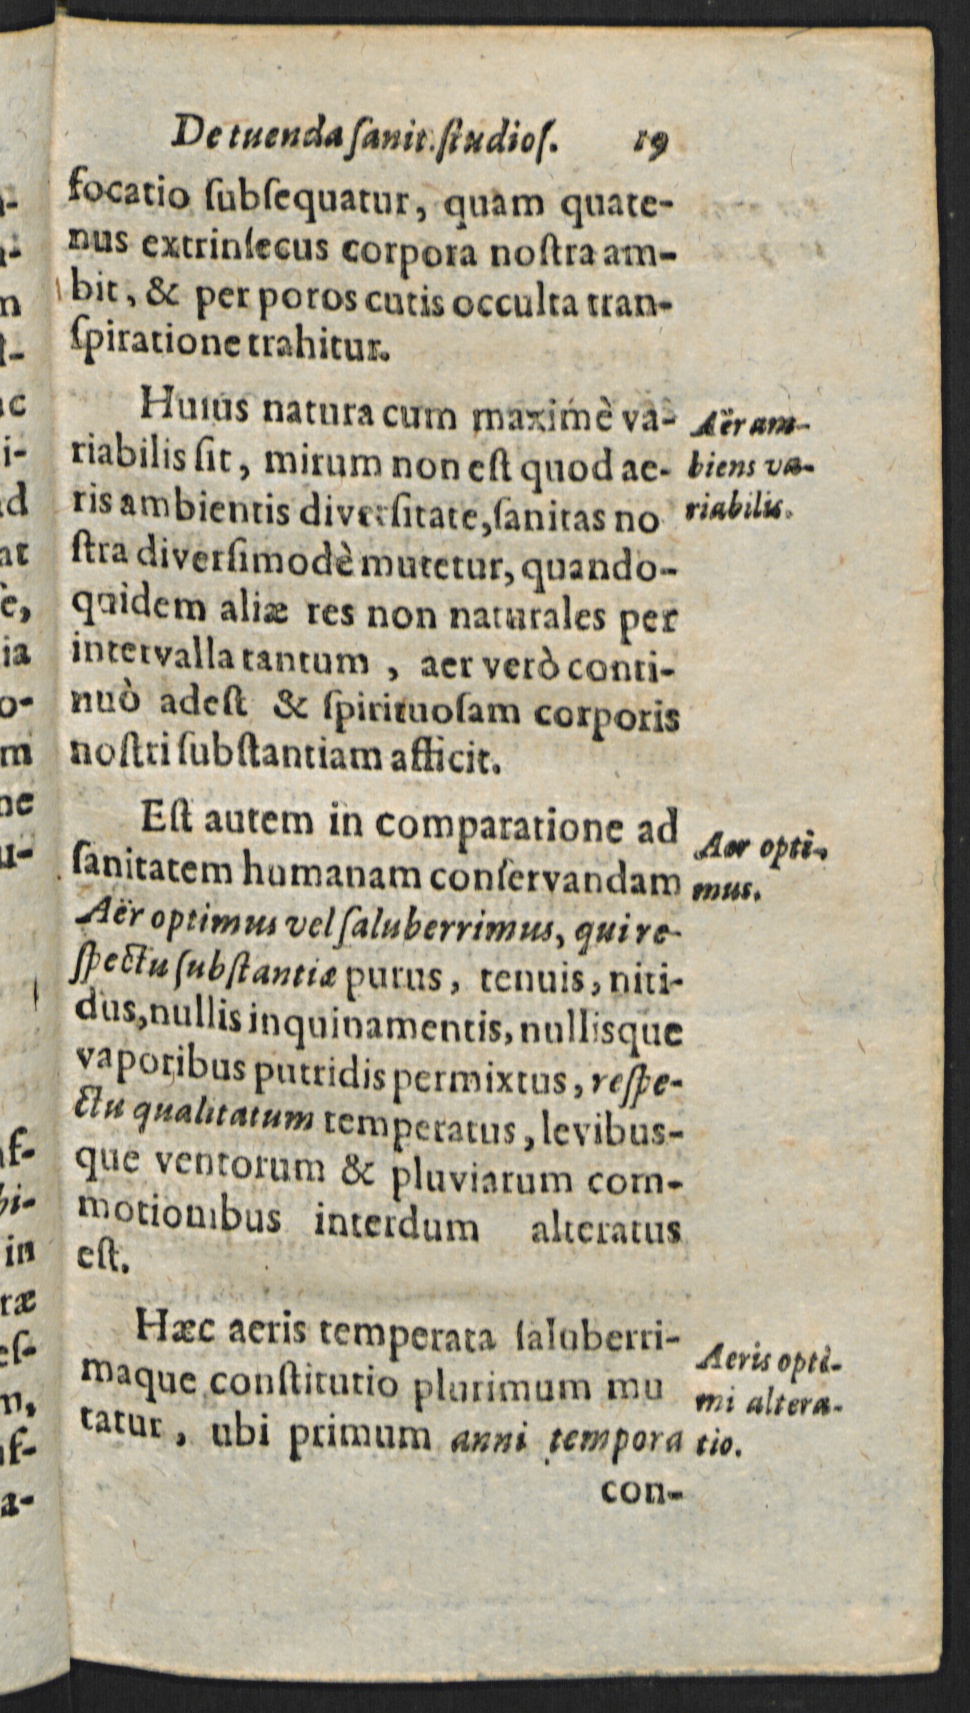 De tuenda ſanit. ſtudioſ. 19
focatio ſubſequatur, quam quate-
nus extrinſecus corpora noſtra am-
bit, & per poros cutis occulta tran-
ſpiratione trahitur.
Huius natura cum maximè va-
riabilis ſit, mirum non eſt quod ae-
ris ambientis diverſitate, ſanitas no
ſtra diverſimodè mutetur, quando-
quidem aliæ res non naturales per
intervalla tantum, aer verò conti-
nuò adeſt & ſpirituoſam corporis
noſtri ſubſtantiam afficit.
Aër am-
biens va-
riabilis.
Eſt autem in comparatione ad
ſanitatem humanam conſervandam
Aër optimus vel ſaluberrimus, qui re-
ſpectu ſubſtantiæ purus, tenuis, niti-
dus, nullis inquinamentis, nullisque
vaporibus putridis permixtus, reſpe-
ctu qualitatum temperatus, levibus-
que ventorum & pluviarum com-
motionibus interdum alteratus
eſt.
Aer opti-
mus.
Hæc aeris temperata ſaluberri-
maque conſtitutio plurimum mu
tatur, ubi primum anni tempora
Aeris opti-
mi altera-
tio.
con-